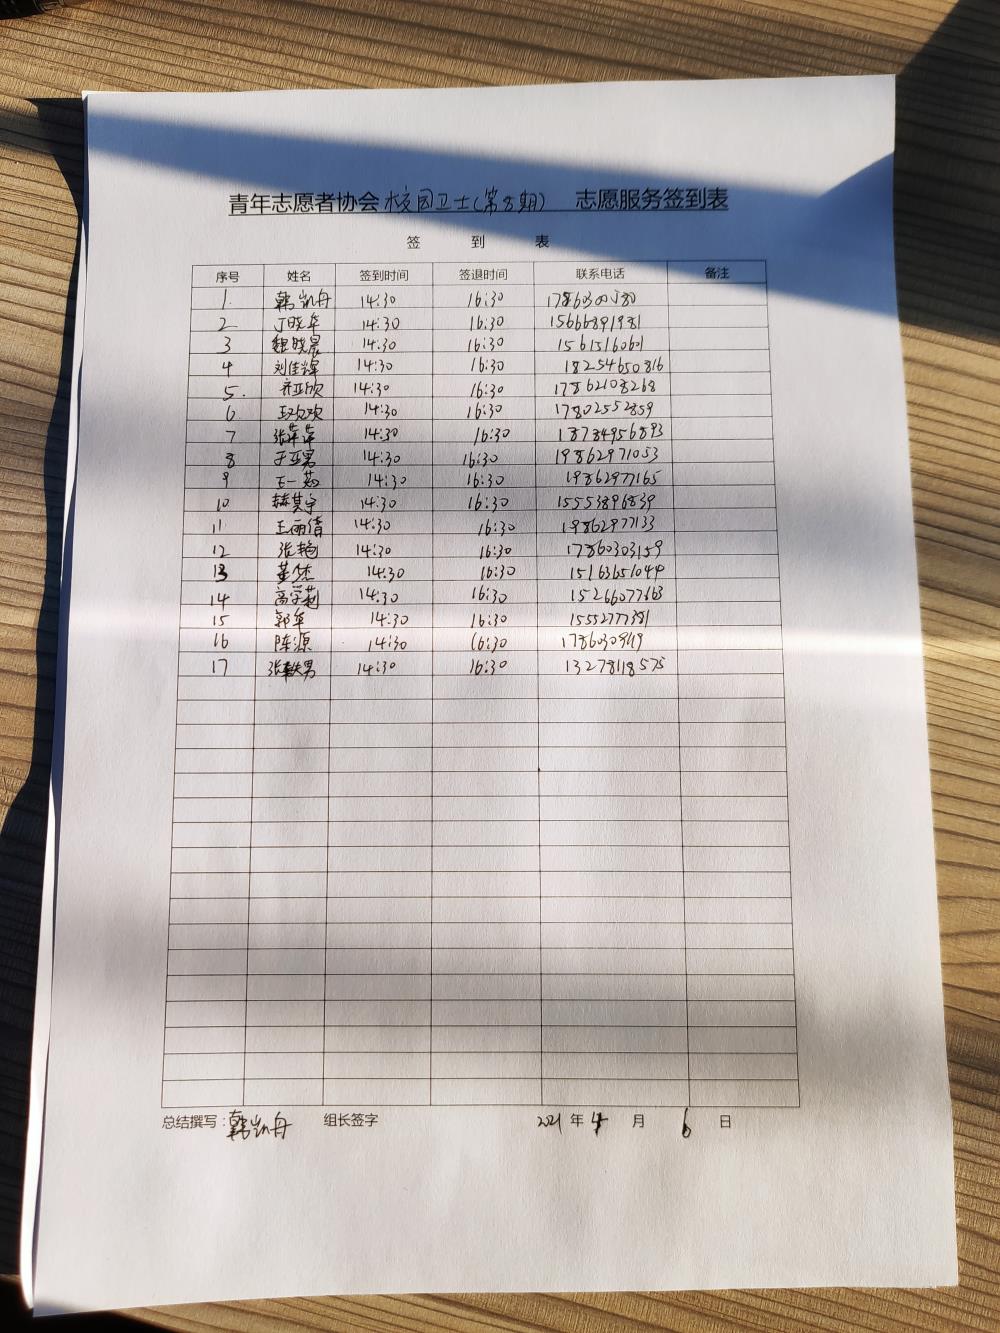 青年志愿者协会校园卫士(第8期) 志愿服务签到表
签 到 表
序号 姓名 签到时间 签退时间 联系电话 备注
1. 韩凯舟 14:30 16:30
2 丁晓华 14:30 16:30 15666891981
3 魏晓晨 14:30 16:30 15615160601
4 刘佳辉 14:30 16:30 18254650816
5. 乔亚欣 14:30 16:30 17862108268
6 王欢欢 14:30 16:30 17802552859
7 张萍萍 14:30 16:30 18784956893
8 于亚男 14:30 16:30 19862971053
9 王一茹 14:30 16:30 19862977165
10 14:30 16:30 15553896839
11 王丽倩 14:30 16:30 19862977133
12 张艳 14:30 16:30 17860303159
13 董杰 14:30 16:30 15163651049
14 高学莉 14:30 16:30 15266077163
15 郭军 14:30 16:30 15552777381
16 陈源 14:30 16:30
17 张轶男 14:30 16:30 13278118575
总结撰写：韩凯舟 组长签字 2021 年 4 月 6 日